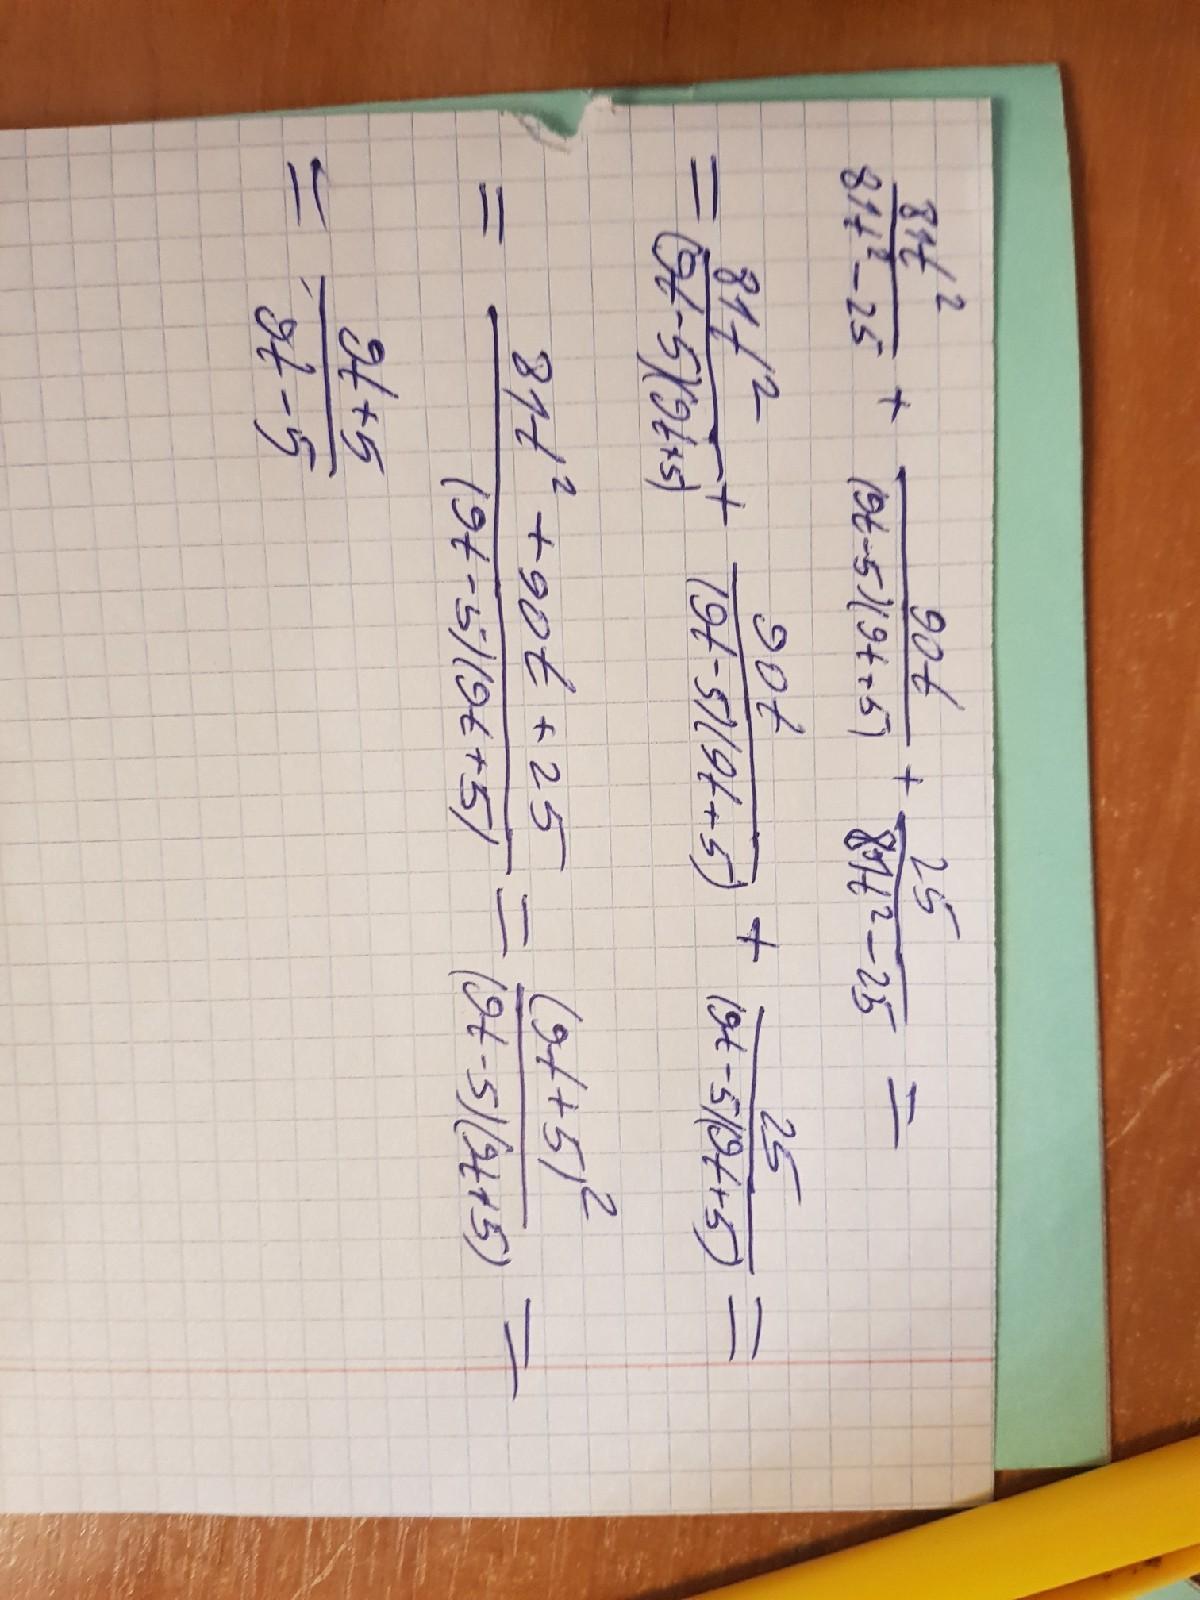 81t²/(81t² - 25) + 90t/((9t - 5)(9t + 5)) + 25/(81t² - 25) =
= 81t²/((9t - 5)(9t + 5)) + 90t/((9t - 5)(9t + 5)) + 25/((9t - 5)(9t + 5)) =
= (81t² + 90t + 25)/((9t - 5)(9t + 5)) = (9t + 5)²/((9t - 5)(9t + 5)) =
= (9t + 5)/(9t - 5)